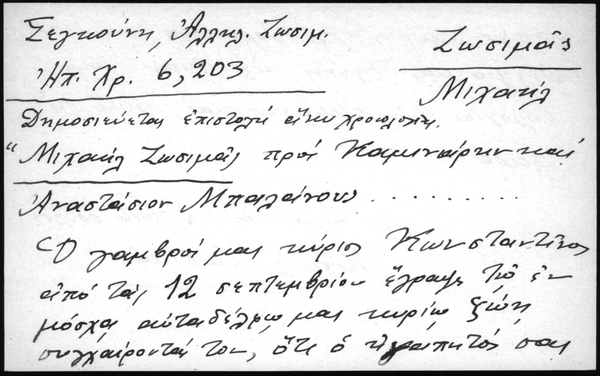 Σεγκούνη, Ἀλληλ. Ζωσιμ.
Ἠπ. Χρ. 6, 203
Ζωσιμᾶς
Μιχαήλ
Δημοσιεύεται ἐπιστολή ἄνευ χρονολογίας.
"Μιχαήλ Ζωσιμᾶς πρός Καμινάρην καί
Ἀναστάσιον Μπαλάνους . . . . . . . . .
Ὁ γαμβρός μας κύριος Κωνσταντῖνος
ἀπό τάς 12 σεπτεμβρίου ἔγραψε τῷ ἐν
μόσχᾳ αὐταδέλφῳ μας κυρίῳ ζώῃ
συγχαίροντάς τον, ὅτι ὁ σας